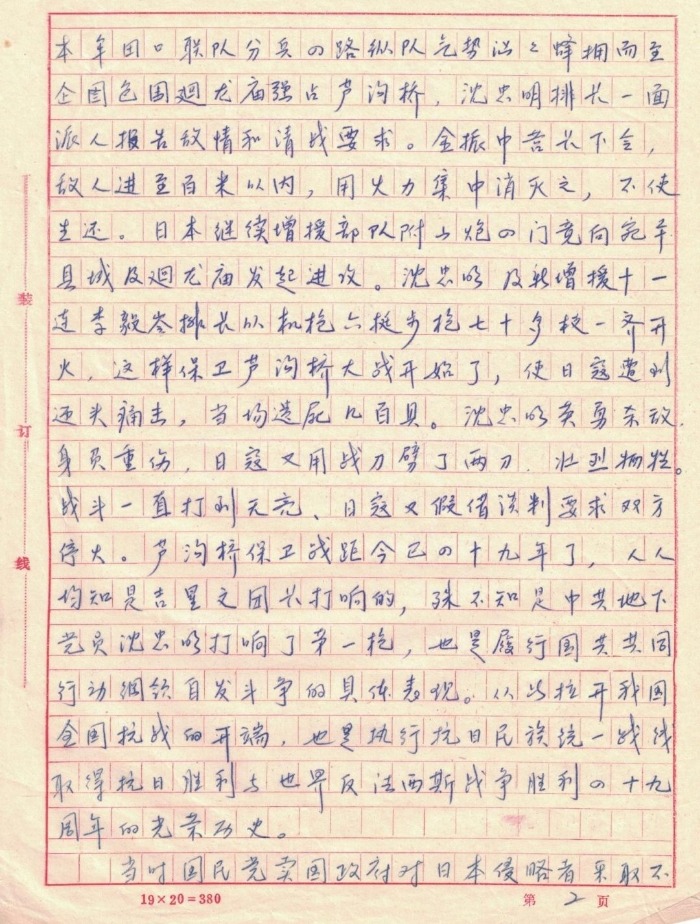 本 牟田口联队分兵の路纵队气势汹々蜂拥而至
企图包围廻龙庙强占芦沟桥，沈忠明排长一面
派人报告敌情和请战要求。金振中营长下令，
敌人进至百米以内，用火力集中消灭之，不使
生还。日本继续增援部队附山炮の门竟向宛平
县城及廻龙庙发起进攻。沈忠明及新增援十一
连李毅岑排长以机枪六挺步枪七十多枝一齐开
火，这样保卫芦沟桥大战开始了，使日寇遭到
迎头痛击，当场造死几百具。沈忠明英勇杀敌，
身负重伤，日寇又用战刀劈了两刀，壮烈牺牲。
战斗一直打到天亮、日寇又假借谈判要求双方
停火。芦沟桥保卫战距今已の十九年了，人人
均知是吉星文团长打响的，殊不知是中共地下
党员沈忠明打响了第一枪，也是履行国共共同
行动纲领自发斗争的具体表现。从此拉开我国
全国抗战的开端，也是执行抗日民族统一战线
取得抗日胜利与世界反法西斯战争胜利の十九
周年的光荣历史。
当时国民党卖国政府对日本侵略者采取不
装
订
线
19×20=380
第 2 页